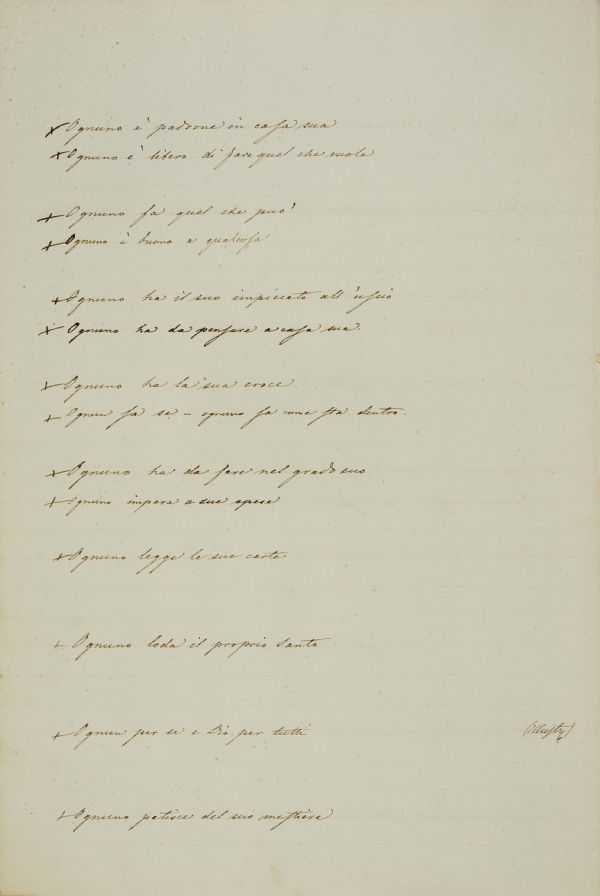 × Ognuno è padrone in casa sua
× Ognuno è libero di fare quel che vuole
+ Ognuno fa quel che può
+ Ognuno è buono a qualcosa
+ Ognuno ha il suo impiccato all'uscio
× Ognuno ha da pensare a casa sua.
+ Ognuno ha la sua croce
+ Ognun sa sè – ognuno sa come sta dentro.
+ Ognuno ha da fare nel grado suo
+ Ognuno impara a sue spese
+ Ognuno legge le sue carte
+ Ognuno loda il proprio Santo
+ Ognun per se e Dio per tutti (illustr)
+ Ognuno patisce del suo mestiere